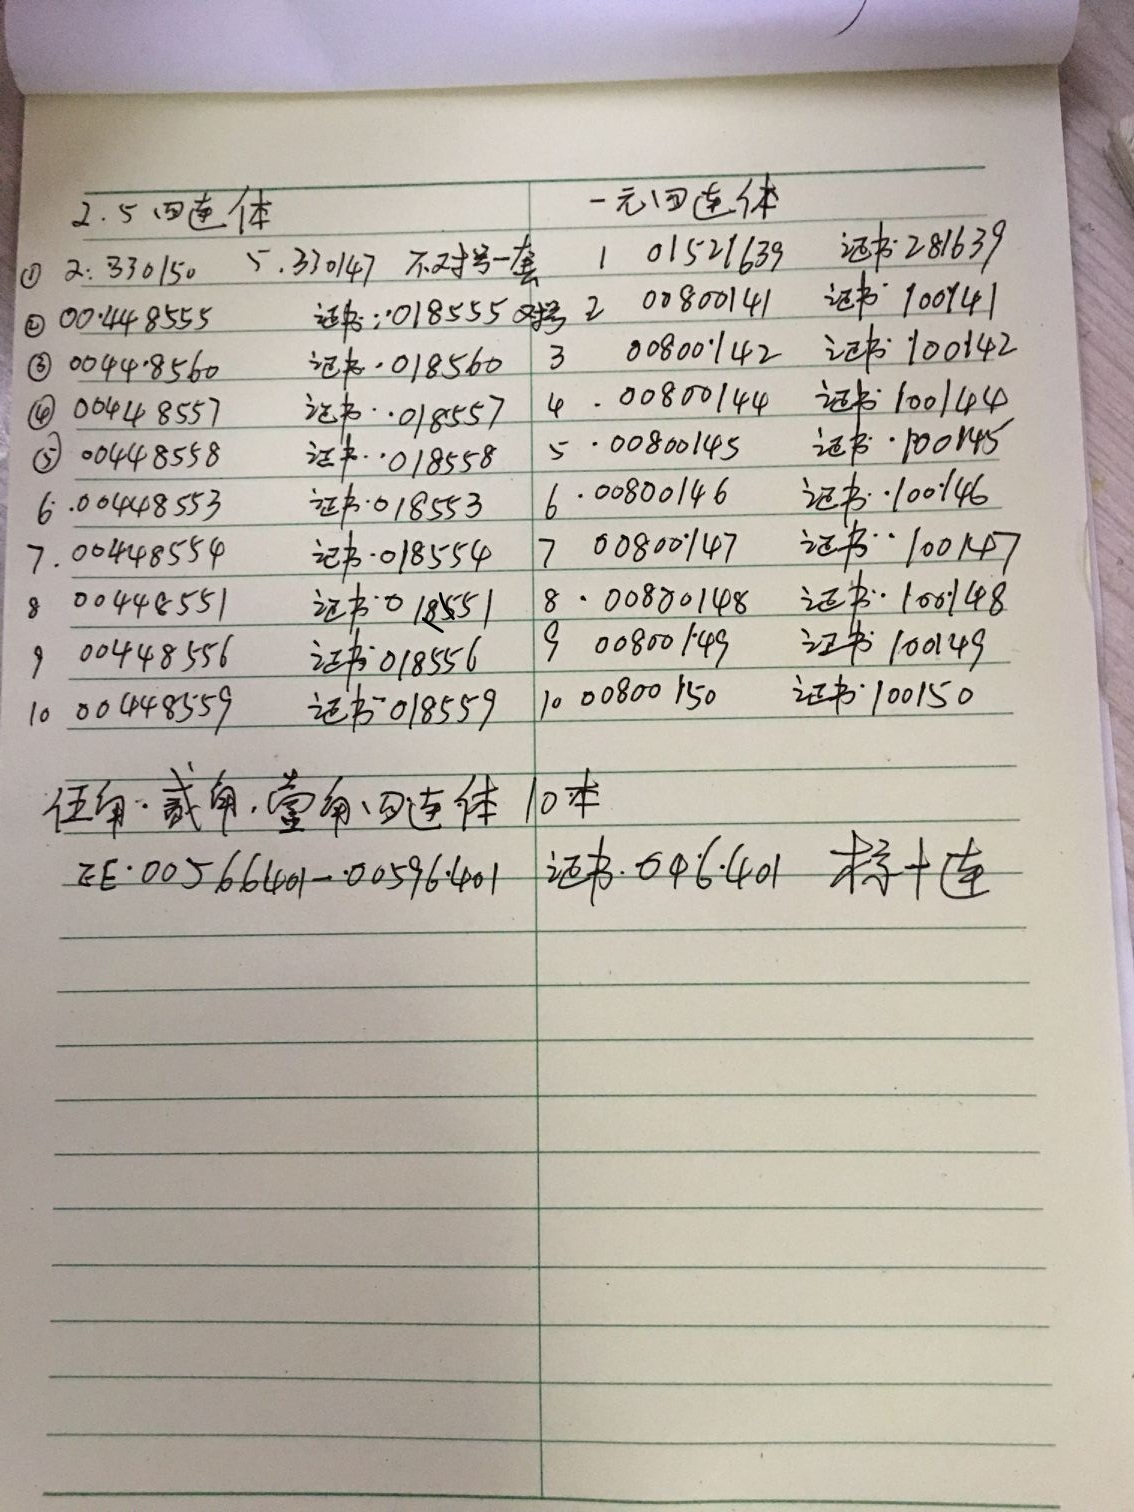 2.5四连体
① 2: 330150 5.330147 不对号一套
② 00.448555 证书:.018555 对号
③ 0044.8560 证书.018560
④ 00448557 证书..018557
⑤ 00448558 证书..018558
6. .00448553 证书.018553
7. 00448554 证书.018554
8 00448551 证书.018551
9 00448556 证书018556
10 00448559 证书.018559
一元四连体
1 01521639 证书281639
2 00800141 证书 100141
3 00800142 证书 100142
4 .00800144 证书 100144
5 .00800145 证书.100145
6 .00800146 证书.100146
7 00800147 证书..100147
8 .00800148 证书.100148
9 00800149 证书 100149
10 00800150 证书.100150
伍角.贰角.壹角四连体 10本
EE.00566401-.00596.401 证书.046.401 标十连